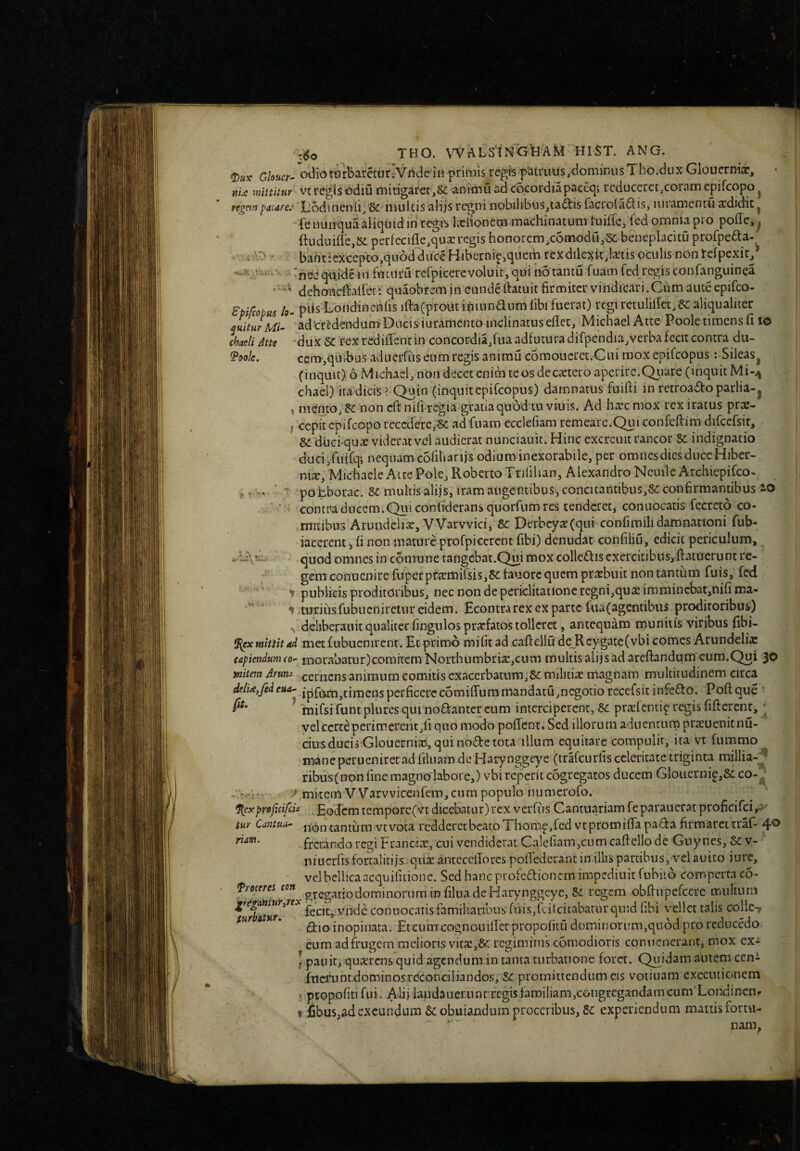 360 THO. WALSINGHAM HIST. ANG.
odio turbaretur. Vnde in primis regis patruus, dominus Tho. dux Glouerniæ,
Dux Gloucr-
niæ mittitur vt regis odiū mitigaret, & animū ad cōcordiā pacēq; reduceret, coram epiſcopo
regem pacare. Lōdinenſi, & multis alijs regni nobilibus, tactis ſacroſāctis, iuramentū ædidit
ſe nunquā aliquid in regis læſionem machinatum fuiſſe, ſed omnia pro poſſe,
ſtuduiſſe, & perfeciſſe, quæ regis honorem, cōmodū, & beneplacitū proſpecta-
bant: excepto, quòd ducē Hibernię, quem rex dilexit, lætis oculis non reſpexit,
nec quidē in futurū reſpicere voluit, qui nō tantū ſuam ſed regis conſanguineā
dehoneſtaſſet: quāobrem in eundē ſtatuit firmiter vindicari. Cùm autē epiſco-
Epiſcopus lo-
quitur Mi-
chaeli Atte
Poole.
pus Londinenſis iſta (prout iniunctum ſibi fuerat) regi retuliſſet, & aliqualiter
ad credendum Ducis iuramento inclinatus eſſet, Michael Atte Poole timens ſi 10
dux & rex rediſſent in concordiā, ſua ad futura diſpendia, verba fecit contra du-
cem, quibus aduerſus eum regis animū cōmoueret. Cui mox epiſcopus: Sileas,
(inquit) ô Michael, non decet enim te os de cætero aperire. Quare (inquit Mi-
chael) ita dicis? Quin (inquit epiſcopus) damnatus fuiſti in retroacto parlia-
mento, & non eſt niſi regia gratia quòd tu viuis. Ad hæc mox rex iratus præ-
cepit epiſcopo recedere, & ad ſuam eccleſiam remeare. Qui confeſtim diſceſsit,
& duci quæ viderat vel audierat nunciauit. Hinc excreuit rancor & indignatio
duci, ſuiſq; nequam cōſiliarijs odium inexorabile, per omnes dies duce Hiber-
niæ, Michaele Atte Pole, Roberto Triſilian, Alexandro Neuile Archiepiſco-
po Eborac. & multis alijs, iram augentibus, concitantibus, & confirmantibus 20
contra ducem. Qui conſiderans quorſum res tenderet, conuocatis ſecretò co-
mitibus Arundeliæ, VVarvvici, & Derbeyæ (qui conſimili damnationi ſub-
iacerent, ſi non maturè proſpicerent ſibi) denudat conſiliū, edicit periculum,
quod omnes in cōmune tangebat. Qui mox collectis exercitibus, ſtatuerunt re-
gem conuenire ſuper præmiſsis, & fauore quem præbuit non tantùm ſuis, ſed
publicis proditoribus, nec non de periclitatione regni, quæ imminebat, niſi ma-
turiùs ſubueniretur eidem. Econtra rex ex parte ſua (agentibus proditoribus)
deliberauit qualiter ſingulos præfatos tolleret, antequàm munitis viribus ſibi-
Rex mittit ad
capiendum co-
mitem Arun-
deliæ, ſed eua-
ſit.
met ſubuenirent. Et primò miſit ad caſtellū de Reygate (vbi comes Arundeliæ
morabatur) comitem Northumbriæ, cum multis alijs ad areſtandum eum. Qui 30
cernens animum comitis exacerbatum, & militiæ magnam multitudinem circa
ipſum, timens perficere cōmiſſum mandatū, negotio receſsit infecto. Poſt quē
miſsi ſunt plures qui noctanter eum interciperent, & præſentię regis ſiſterent,
vel certè perimerent, ſi quo modo poſſent. Sed illorum aduentum præuenit nū-
cius ducis Glouerniæ, qui nocte tota illum equitare compulit, ita vt ſummo
mane perueniret ad ſiluam de Harynggeye (trāſcurſis celeritate triginta millia-
ribus (non ſine magno labore,) vbi reperit cōgregatos ducem Glouernię, & co-
mitem VVarvvicenſem, cum populo numeroſo.
Rex proficiſci-
tur Cantua-
riam.
Eodem tempore (vt dicebatur) rex verſus Cantuariam ſe parauerat proficiſci,
non tantùm vt vota redderet beato Thomę, ſed vt promiſſa pacta firmaret trāſ- 40
fretando regi Franciæ, cui vendiderat Caleſiam, cum caſtello de Guynes, & v-
niuerſis fortalitijs quæ anteceſſores poſſederant in illis partibus, vel auito iure,
vel bellica acquiſitione. Sed hanc profectionem impediuit ſubitò comperta cō-
Proceres con
gregantur, rex
turbatur.
gregatio dominorum in ſilua de Harynggeye, & regem obſtupeſcere multum
fecit, vnde conuocatis familiaribus ſuis, ſciſcitabatur quid ſibi vellet talis colle-
ctio inopinata. Et cum cognouiſſet propoſitū dominorum, quòd pro reducēdo
eum ad frugem melioris vitæ, & regiminis cōmodioris conuenerant, mox ex-
pauit, quærens quid agendum in tanta turbatione foret. Quidam autem cen-
ſuerunt dominos reconciliandos, & promittendum eis votiuam executionem
propoſiti ſui. Alij laudauerunt regis familiam, congregandam cum Londinen-
ſibus, ad exeundum & obuiandum proceribus, & experiendum martis fortu-
nam,